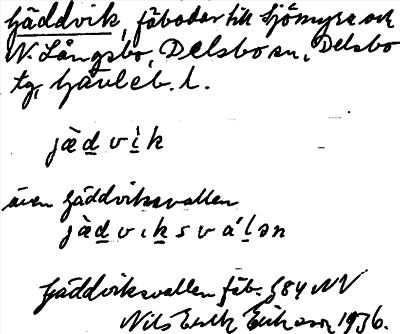 Gäddvik, fäbodar till Sjömyra och
N. Långsbo, Delsbo sn, Delsbo
tg, Gävleb. l.
jàd̲ v i̲ k
även Gäddviksvallen
jàd̲ v ı k̲ s v á l̲ ən
Gäddviksvallen fäb. § 84 NV
Nils Erik Eriksson 1936.